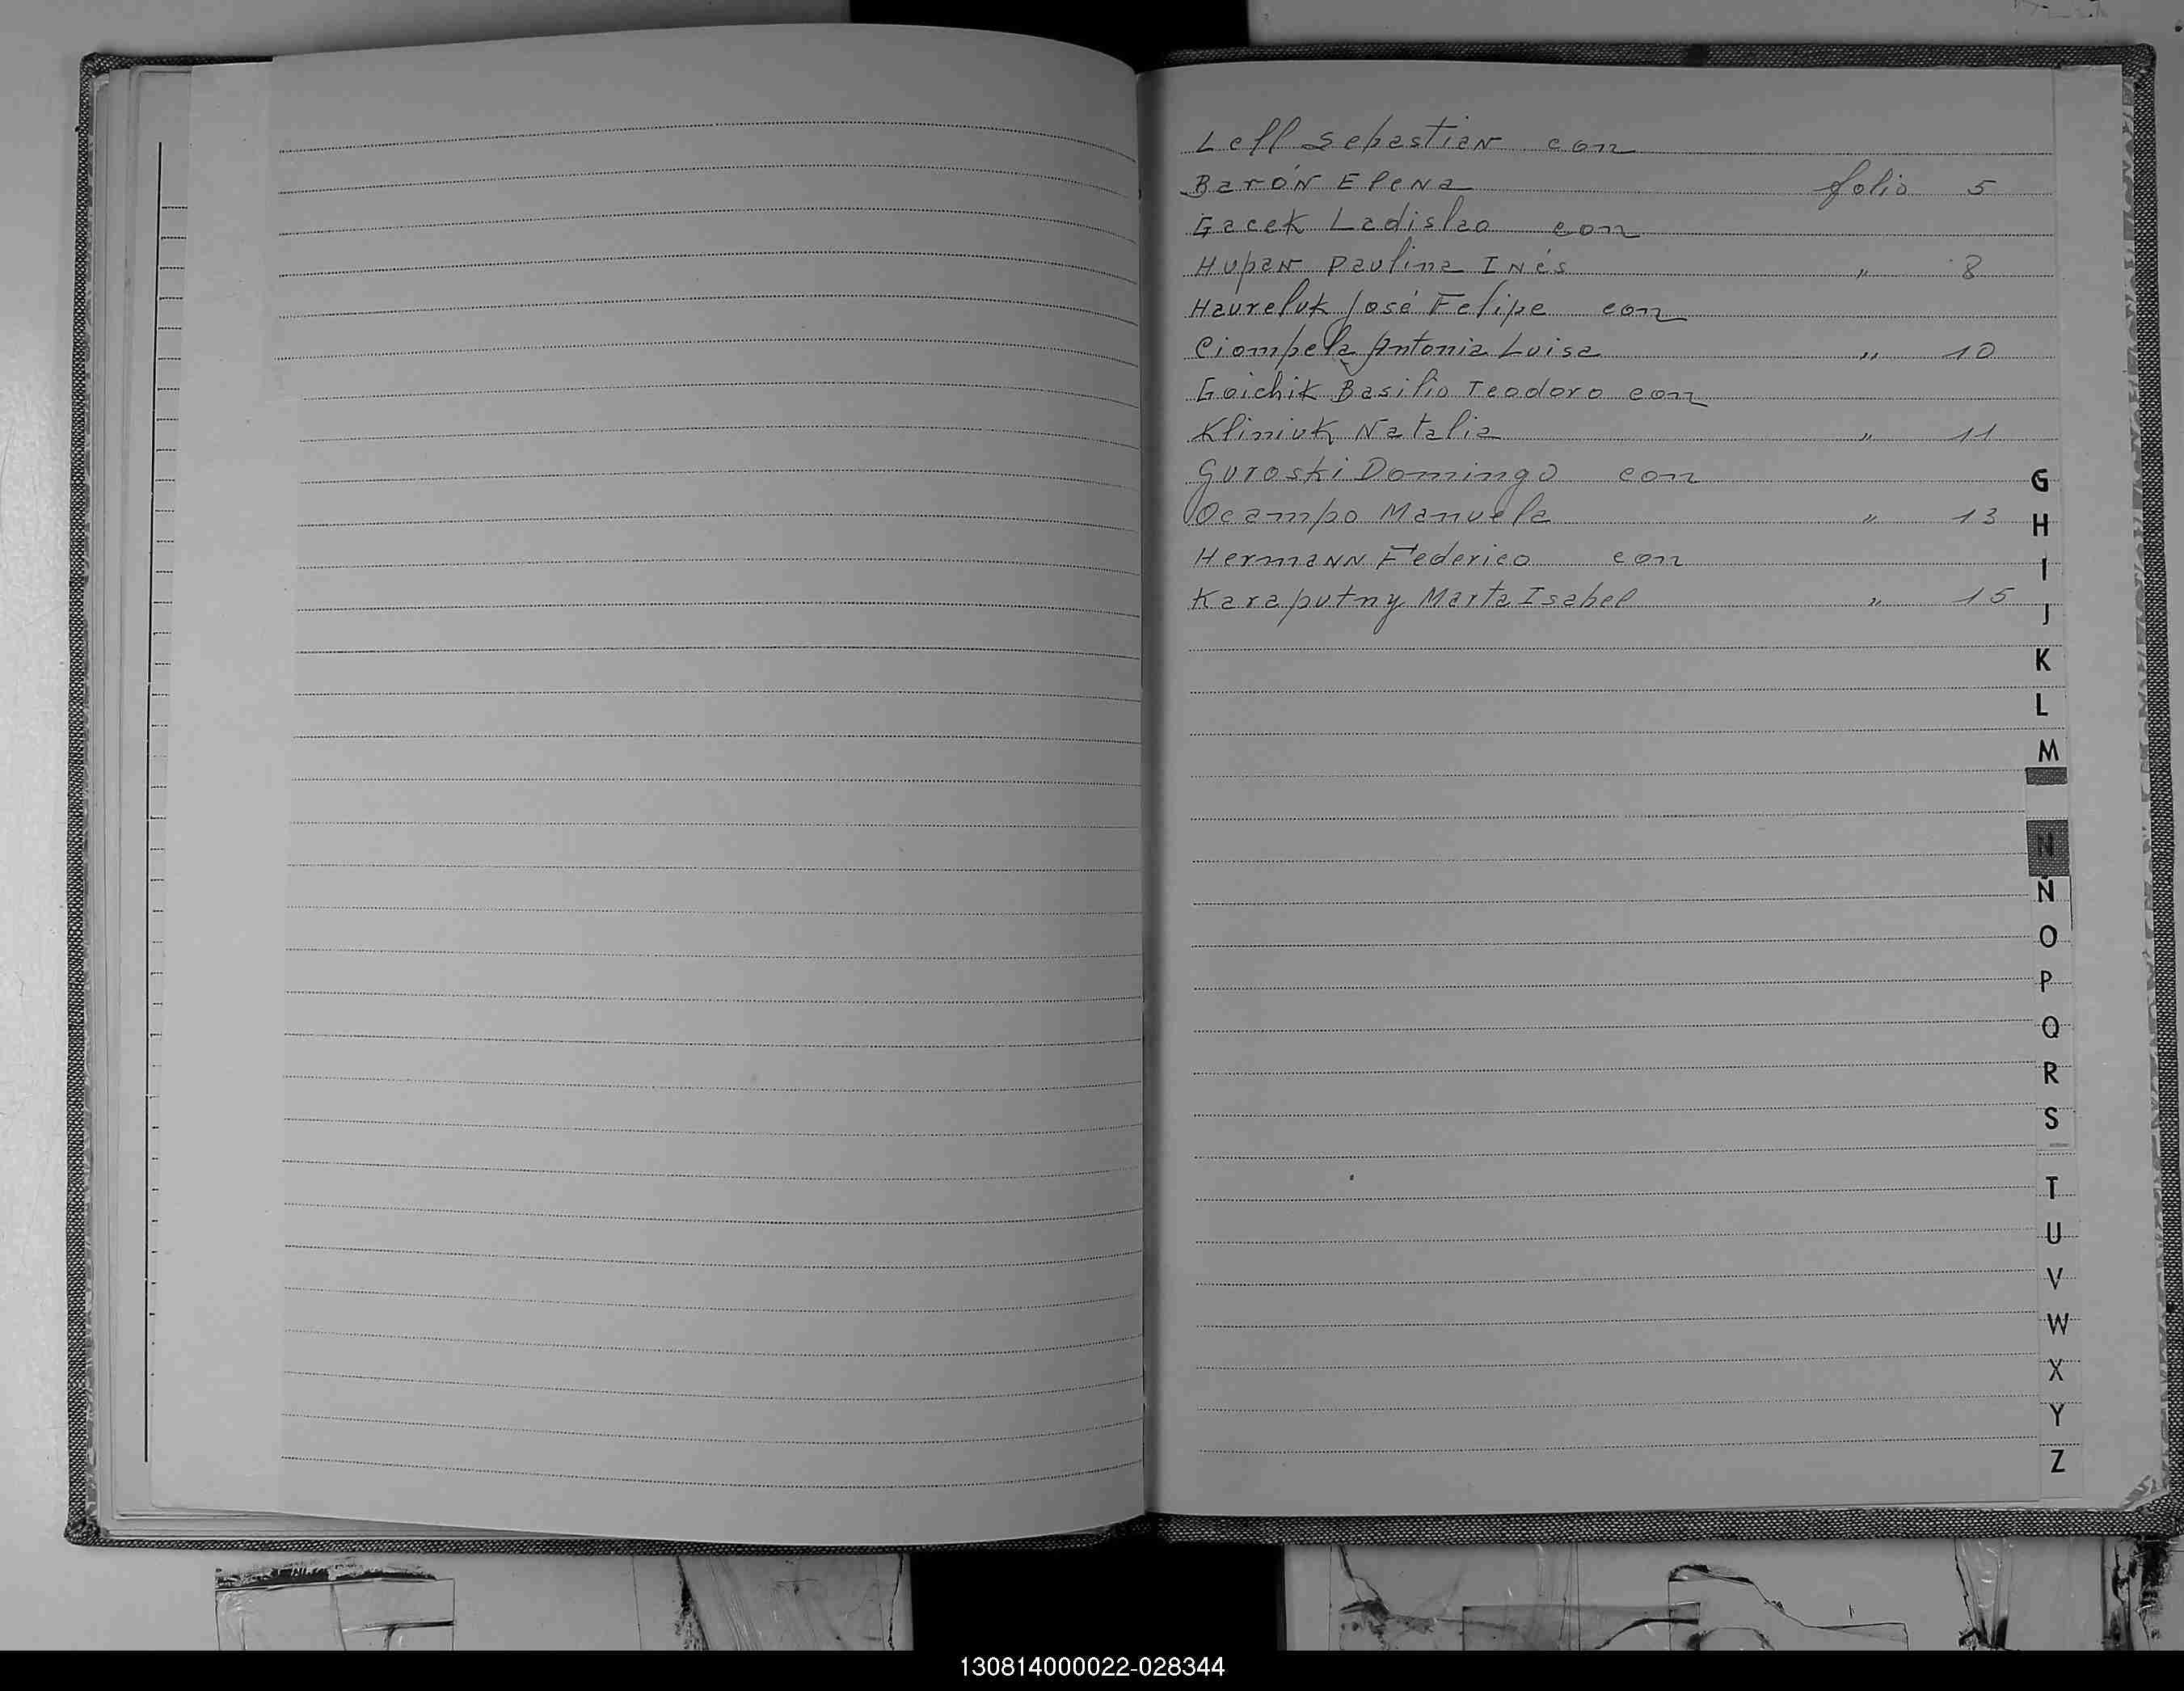 Leff Sebastian con
Barón Elena folio 5
Gacek Ladislao con
Hupan Paulina Inés " 8
Haureluk José Felipe con
Ciompela Antonia Luisa " 10
Goichik Basilio Teodoro con
Kliniuk Natalia " 11
Guroski Domingo con
Ocampo Manuela " 13
Hermann Federico con
Karaputny Marta Isabel " 15
G
H
I
J
K
L
M
N
Ñ
O
P
Q
R
S
T
U
V
W
X
Y
Z
130814000022-028344